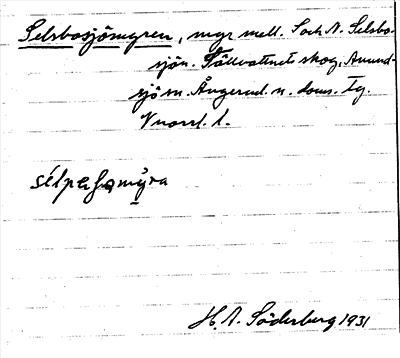 Selsbosjömyren, myr mell. S och N. Selsbo-
sjön. Tällvattnet skog, Anund-
sjö sn. Ångerml. n. doms. tg.
V norrl. l.
H. N. Söderberg 1931